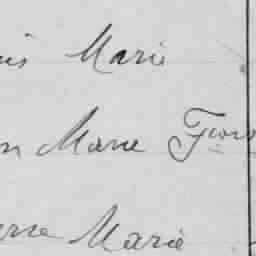 is Marie
n Marie
erre Marie